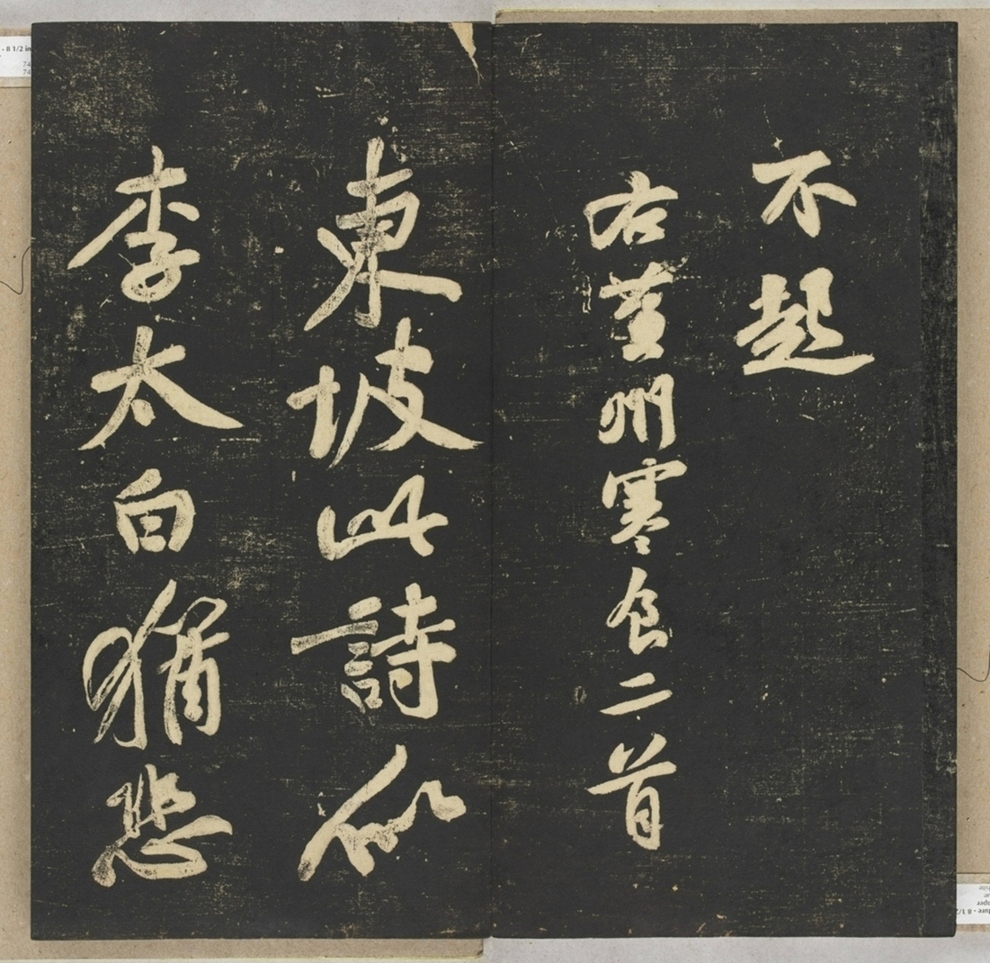 不起
右黃州寒食二首
東坡此詩似
李太白猶恐
- 8 1/2 in